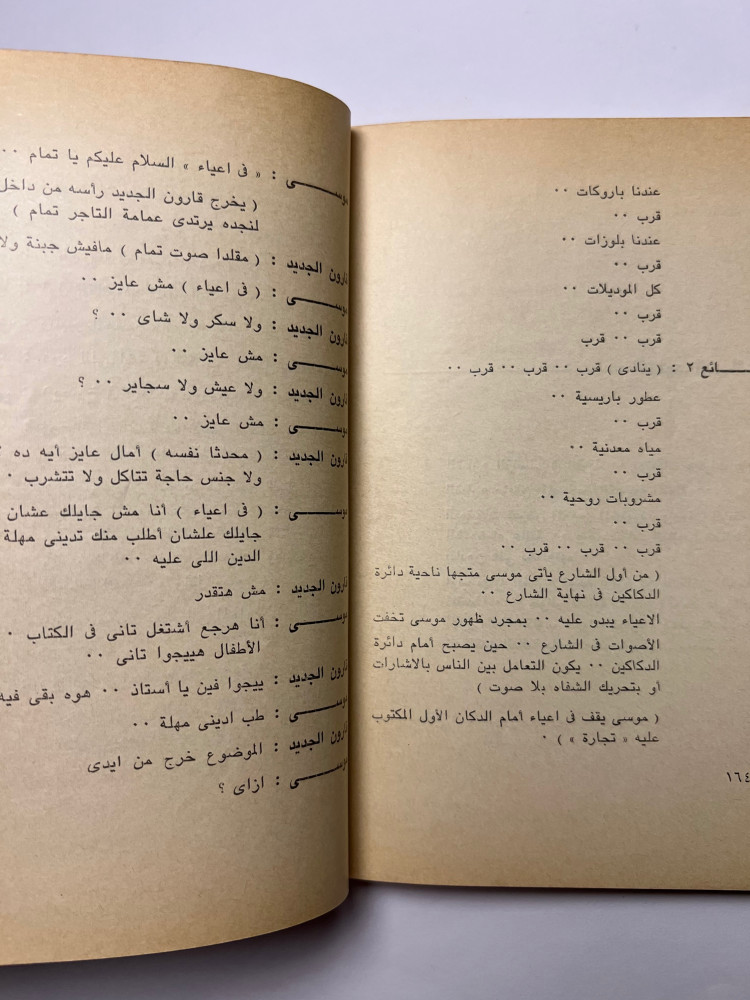 عندنا باروكات ٠٠
قرب ٠٠
عندنا بلوزات ٠٠
قرب ٠٠
كل الموديلات ٠٠
قرب ٠٠
قرب ٠٠ قرب
ـائع ٢ : ( ينادى ) قرب ٠٠ قرب ٠٠ قرب ٠٠
عطور باريسية ٠٠
قرب ٠٠
مياه معدنية ٠٠
قرب ٠٠
مشروبات روحية ٠٠
قرب ٠٠
قرب ٠٠ قرب ٠٠ قرب ٠٠
( من أول الشارع يأتى موسى متجها ناحية دائرة
الدكاكين فى نهاية الشارع ٠٠
الاعياء يبدو عليه ٠٠ بمجرد ظهور موسى تخفت
الأصوات فى الشارع ٠٠ حين يصبح أمام دائرة
الدكاكين ٠٠ يكون التعامل بين الناس بالاشارات
أو بتحريك الشفاه بلا صوت )
( موسى يقف فى اعياء أمام الدكان الأول المكتوب
عليه « تجارة » ) ٠
١٦٤
موســـى : « فى اعياء » السلام عليكم يا تمام ٠٠
( يخرج قارون الجديد رأسه من داخل
لنجده يرتدى عمامة التاجر تمام )
قارون الجديد : ( مقلدا صوت تمام ) مافيش جبنة ولا
موســـى : ( فى اعياء ) مش عايز ٠٠
قارون الجديد : ولا سكر ولا شاى ٠٠ ؟
موســـى : مش عايز ٠٠
قارون الجديد : ولا عيش ولا سجاير ٠٠ ؟
موســـى : مش عايز ٠٠
قارون الجديد : ( محدثا نفسه ) أمال عايز أيه ده
ولا جنس حاجة تتاكل ولا تتشرب ٠
موســـى : ( فى اعياء ) أنا مش جايلك عشان
جايلك علشان أطلب منك تدينى مهلة
الدين اللى عليه ٠٠
قارون الجديد : مش هتقدر
موســـى : أنا هرجع أشتغل تانى فى الكتاب ٠
الأطفال هييجوا تانى ٠٠
قارون الجديد : ييجوا فين يا أستاذ ٠٠ هوه بقى فيه
موســـى : طب ادينى مهلة ٠٠
قارون الجديد : الموضوع خرج من ايدى
موســـى : ازاى ؟